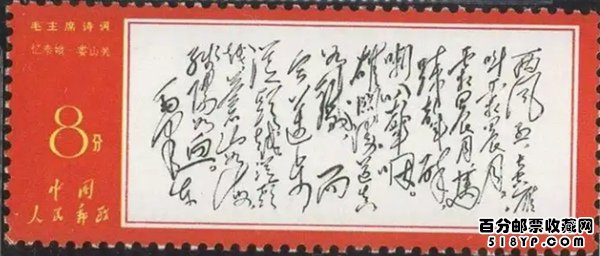 毛主席诗词
忆秦娥·娄山关
8分
中国
人民邮政
西风烈长空雁
叫霜晨月。
霜晨月马
蹄声碎，
喇叭声咽。
雄关漫道真
如铁而
今迈步
从头越从头
越苍山如海
残阳如血。
毛泽东
百分邮票收藏网
518YP.com